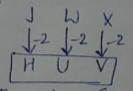 J W X
-2 -2 -2
H U V